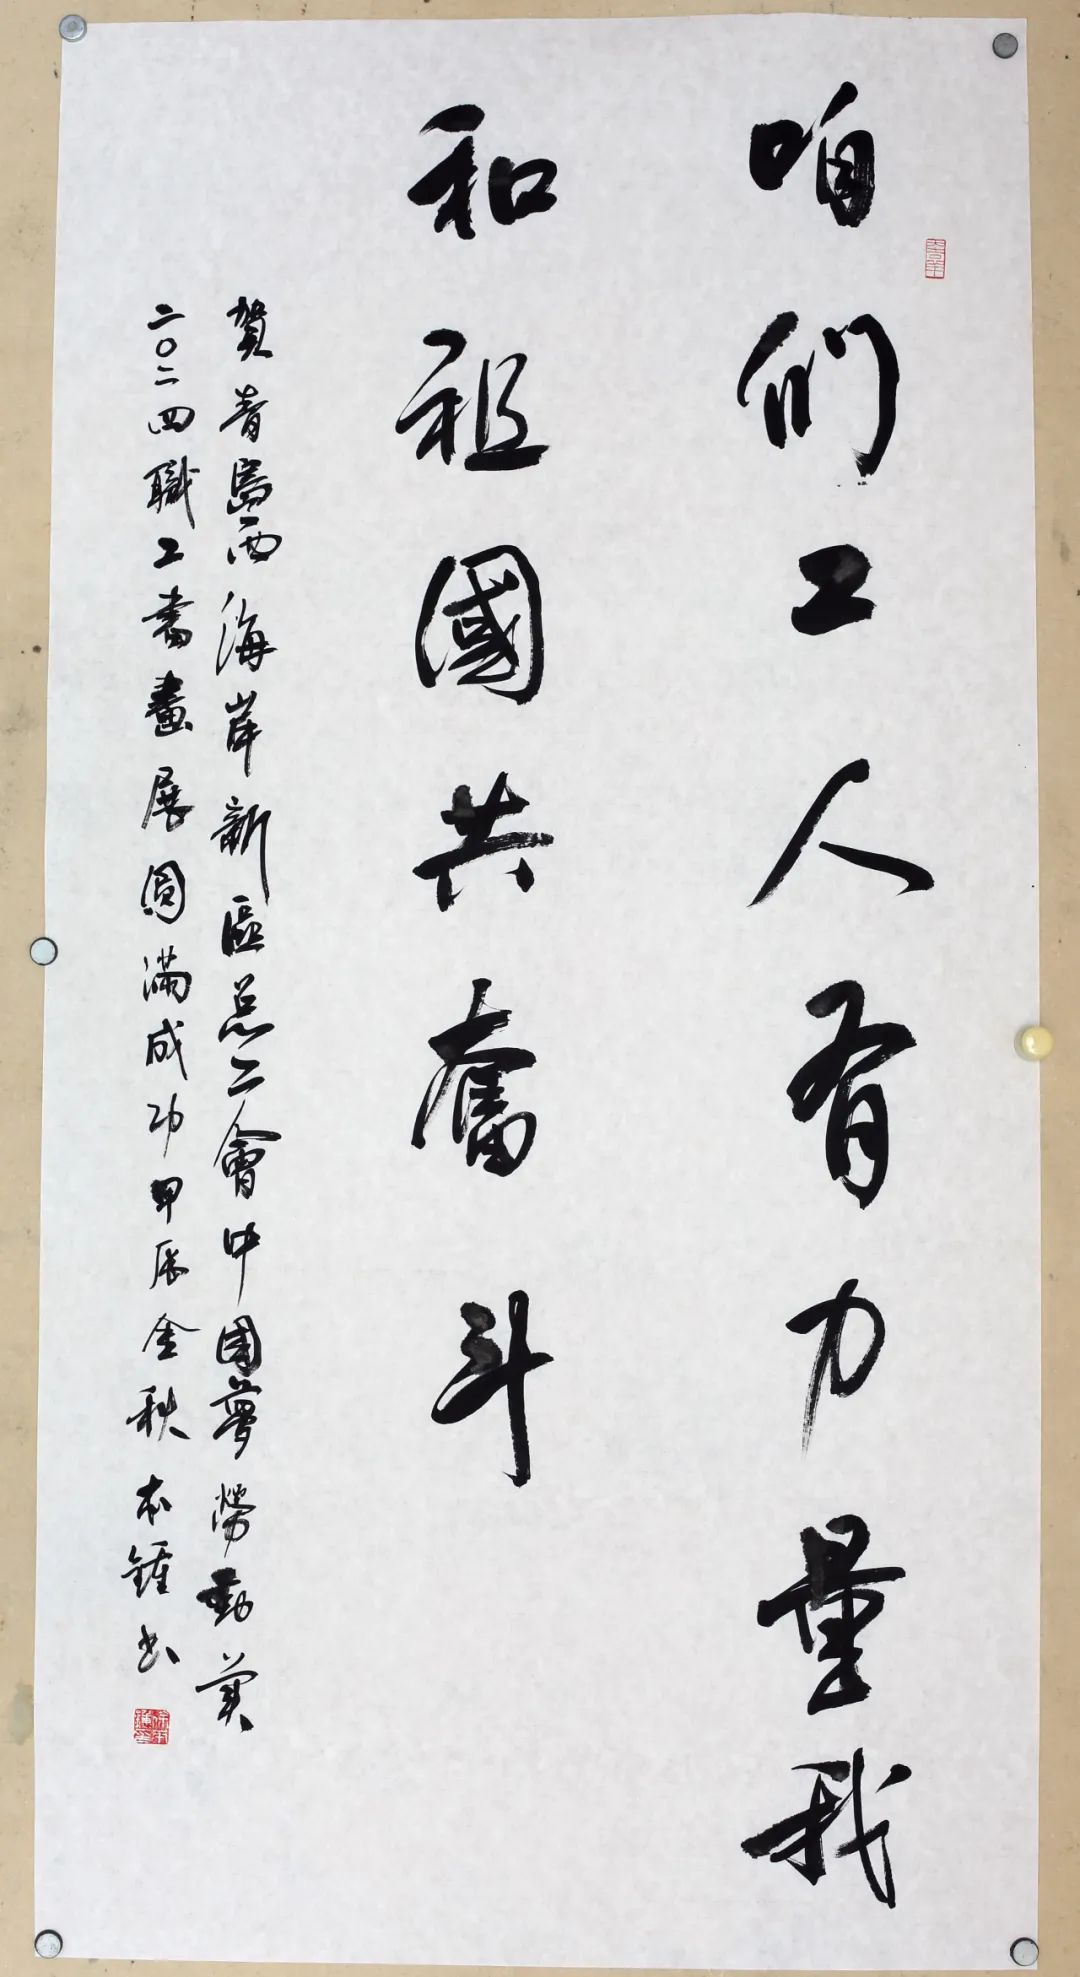 咱們工人有力量我
和祖國共奮斗
賀青島西海岸新區总工會中國夢勞動美
二〇二四職工書畫展圓滿成功甲辰金秋本鍾书